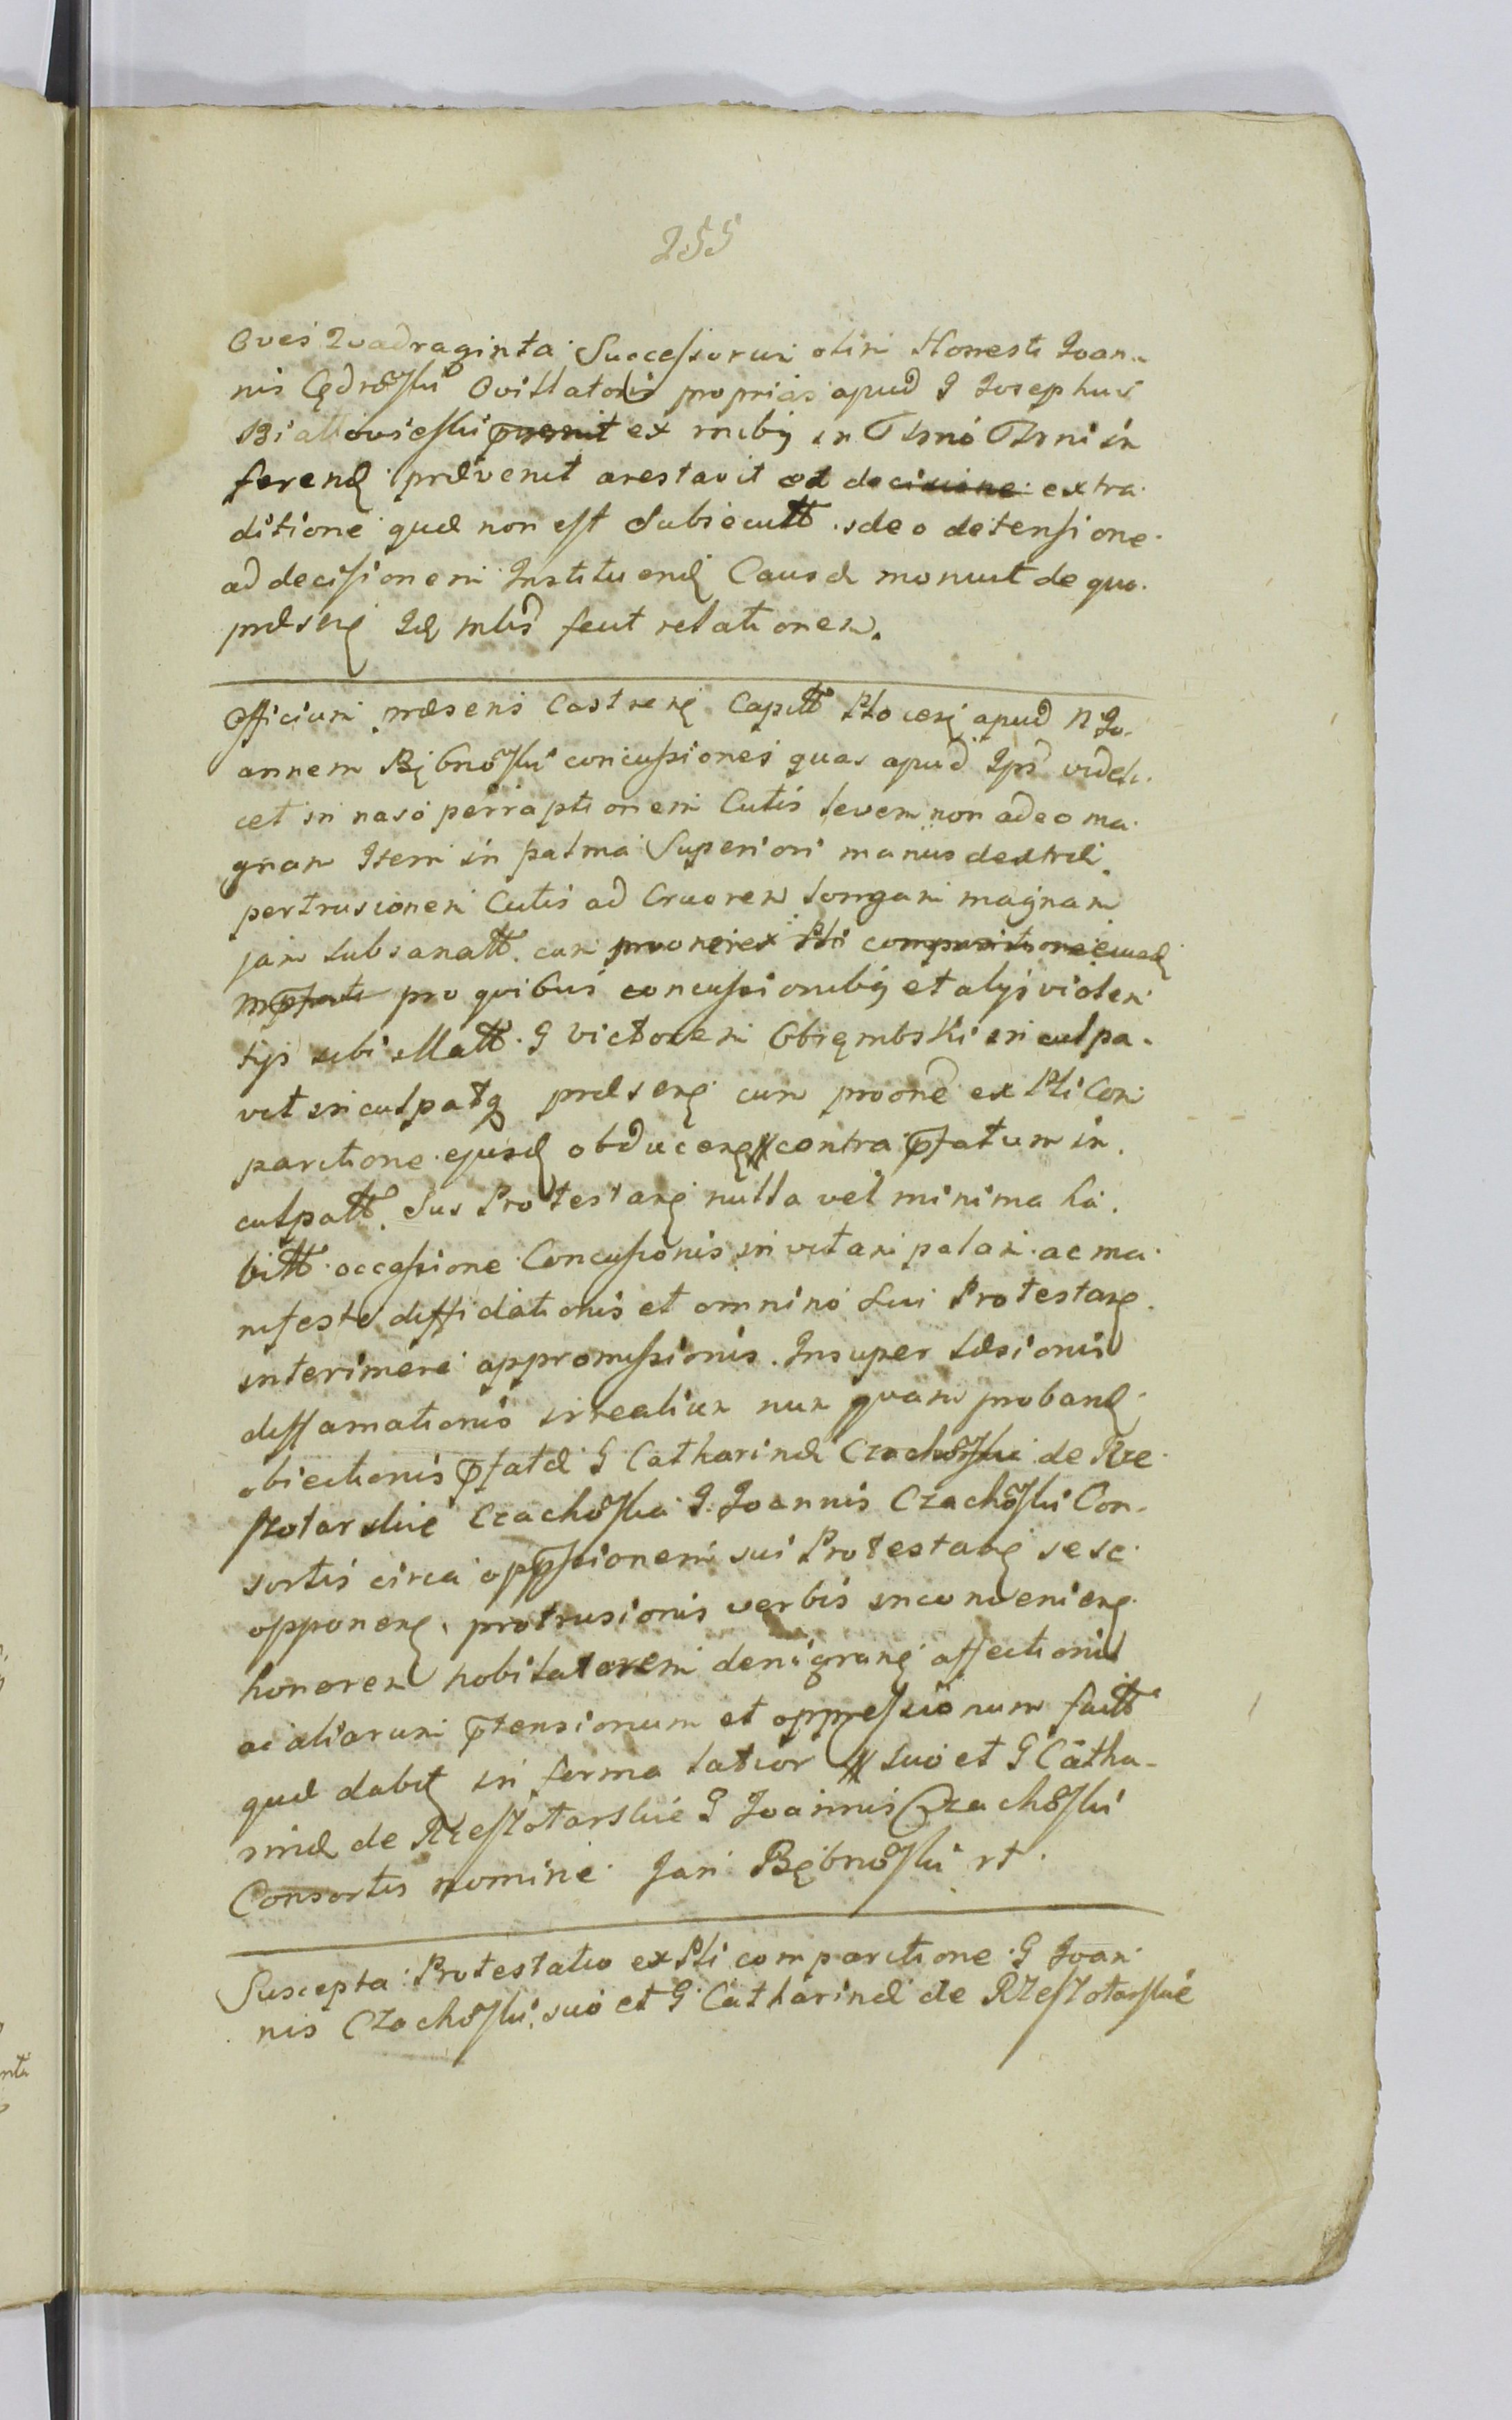 255
Oves Quadraginta Successorum olim Honesti Joan-
nis Cędrowski Ovillatoris proprias apud G Josephum
Białłowieski ex in
ferend prævenit arestavit extra
ditione quæ non est Subsecutt ideo detensione
ad decisionem Instituend Causæ monuit de quo
præsens Id fecit relationem.
Officium præsens Castrens Capitt Plocens apud N Jo-
annem Bębnowski concussiones quas apud Ips videli
cet in naso perraptionem Cutis levem non adeo ma
gnam Item in palma Superiori manus dextræ
pertrusionem Cutis ad Cruorem longam magnam
jam subsanatt cum
pro quibus concussionibus et alys violen
tys sibi illatt G Victorem Obrembski inculpa-
vit inculpatq præsens cum proone ex Pli Com
paritione ejusd obducens contra pfatum in
culpatt Sus Protestans nulla vel minima ha
bitt occassione Concussionis invitam palam ac ma
nifeste diffidationis et omnino sui Protestans
interimere appromissionis. Insuper læsionis
diffamationis irrealium nun quam proband
obiectionis pfatæ G Catharinæ de Rze
szotarskie Czachowska G Joannis Czachowski Con-
sortis circa oppssionem sui Protestans sese
opponens protrusionis verbis inconveniens
honorem nobilatarem denigrans affectionis
ac aliarum ptensionum et oppressionum factt
quæ dabit in forma latior suo et G Catha-
rinæ de Rzeszotarskie G Joannis Czachowski
Consortis nomine Jan Bębnowski rt
Suscepta Protestatio ex Pli comparitione G Joan
nis Czachowski suo et G Catharinæ de Rzeszotarskie